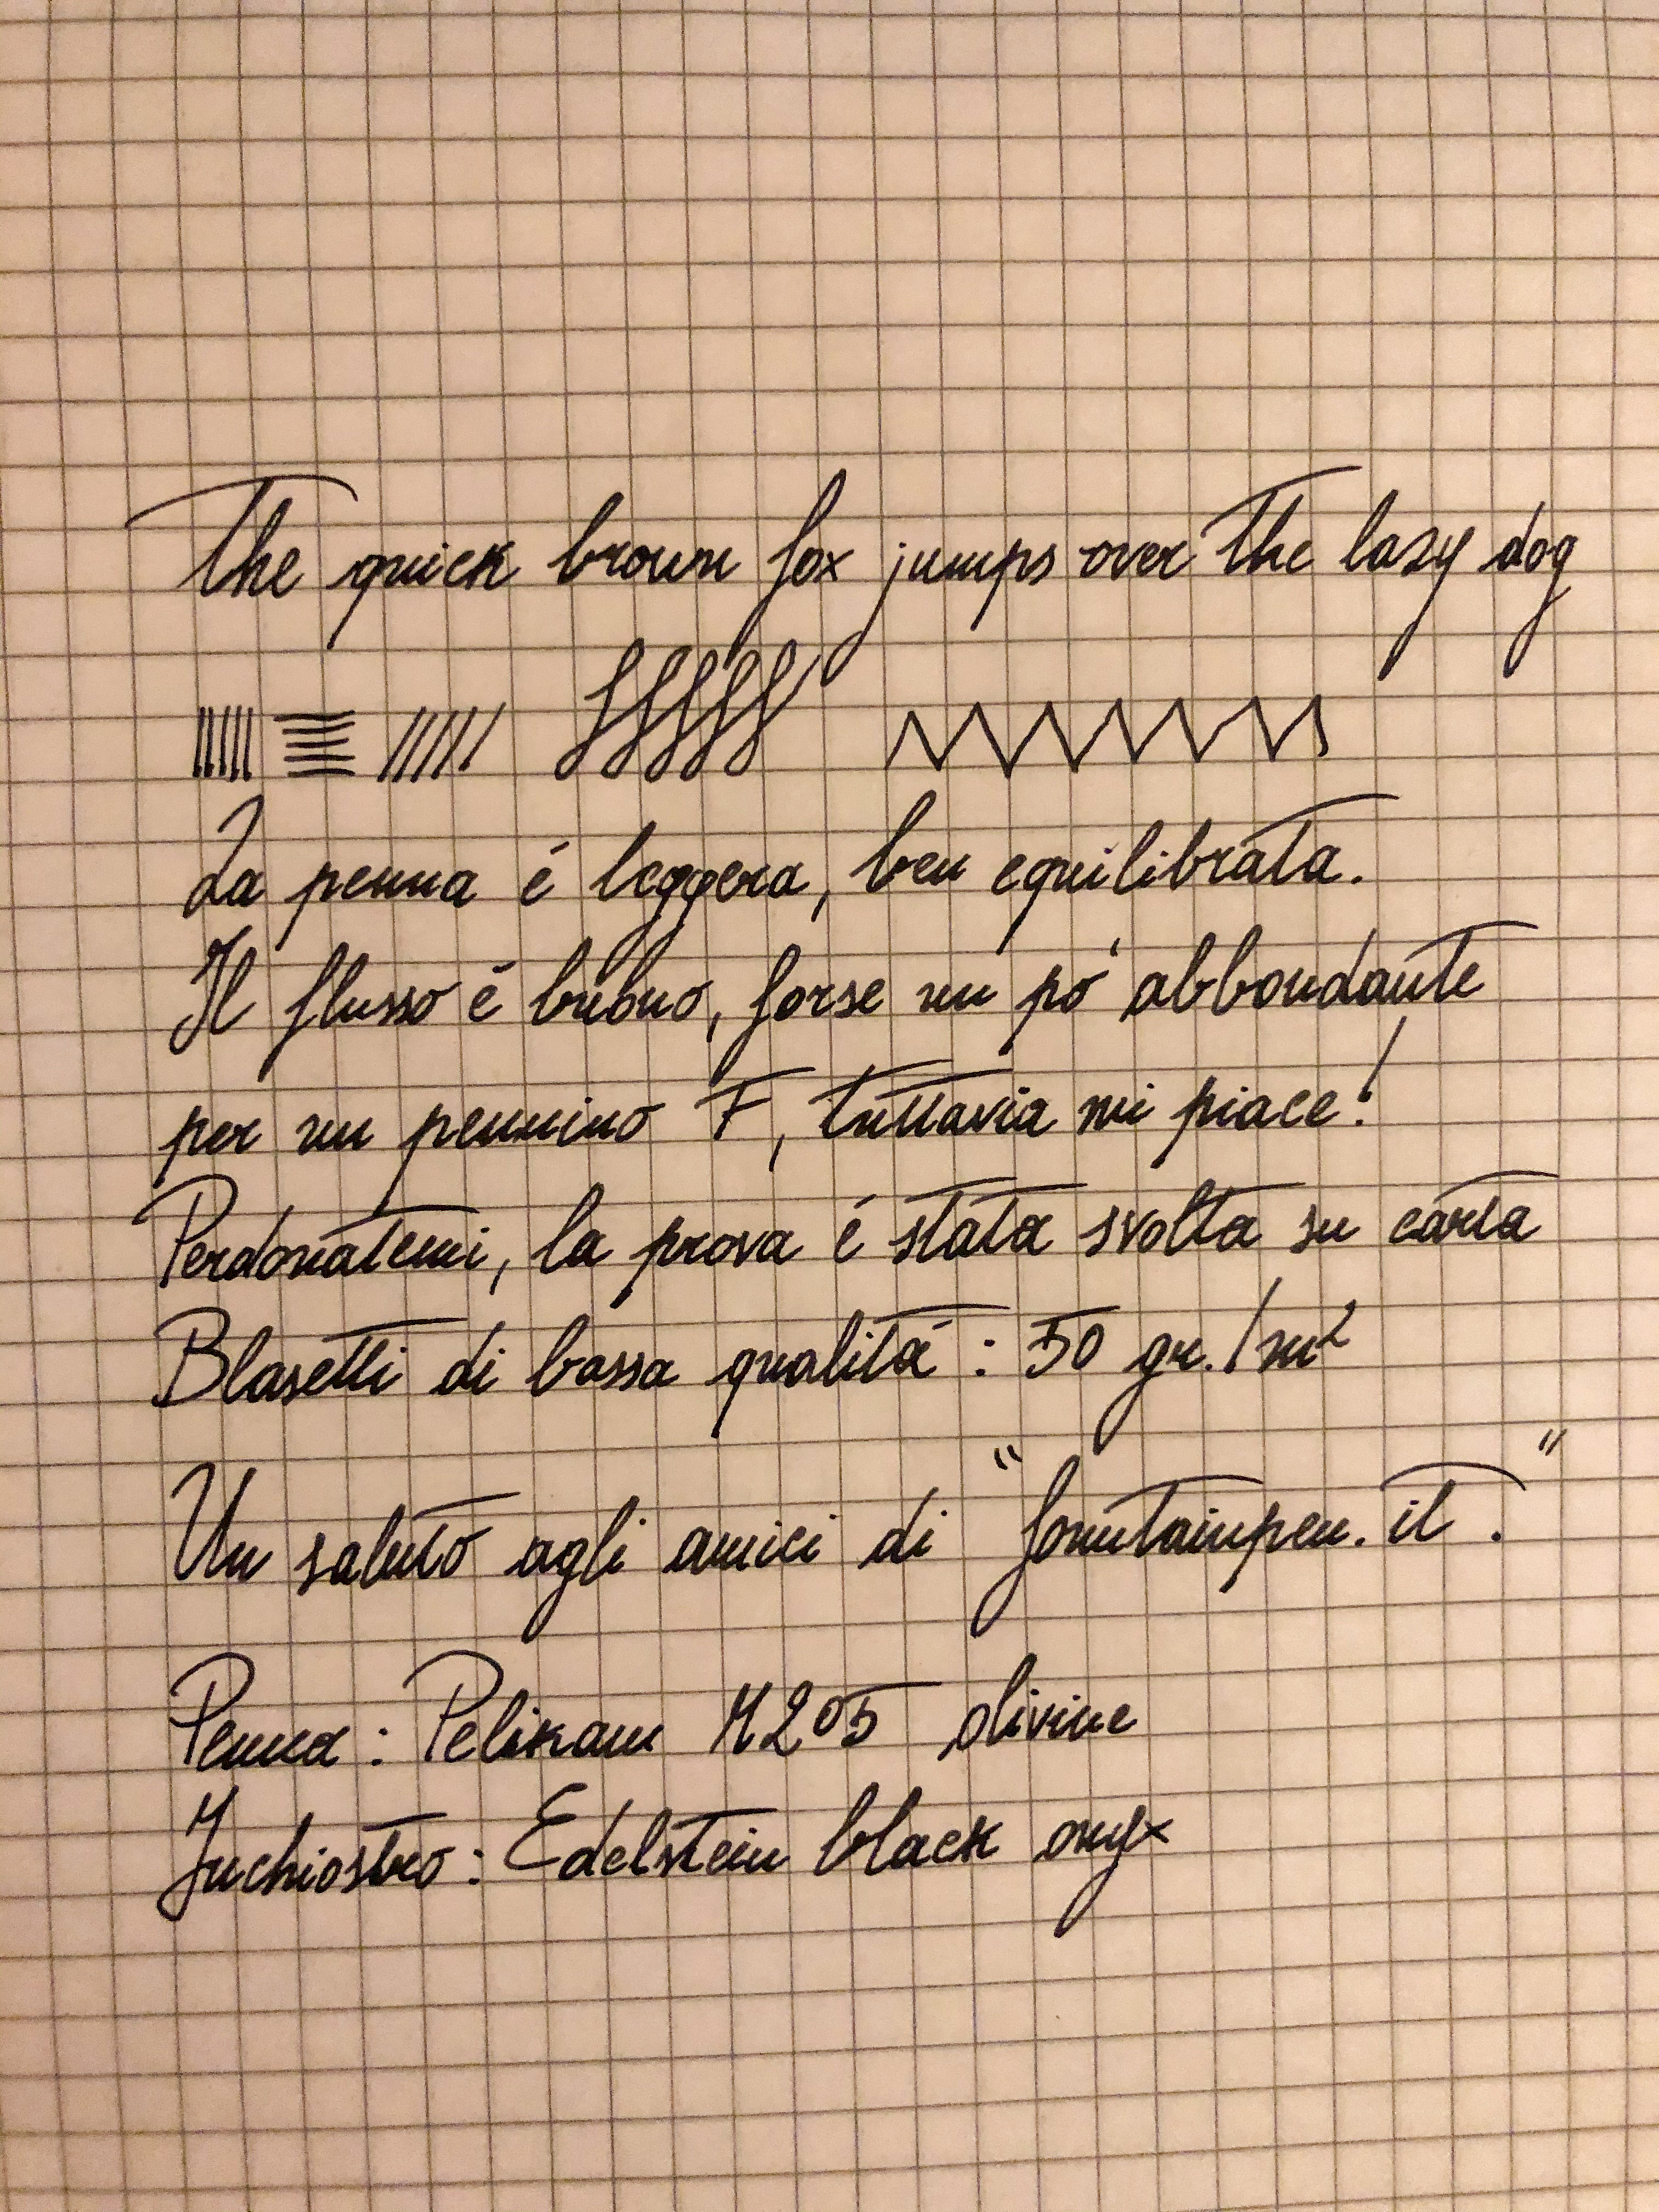 The quick brown fox jumps over the lazy dog
La penna é leggera, ben equilibrata.
Il flusso é buono, forse un pó abbondante
per un pennino F, tuttavia mi piace!
Perdonatemi, la prova é stata svolta su carta
Blasetti di bassa qualitá : 50 gr./m²
Un saluto agli amici di "fountainpen.it."
Penna : Pelikan M205 olivine
Inchiostro : Edelstein black onyx